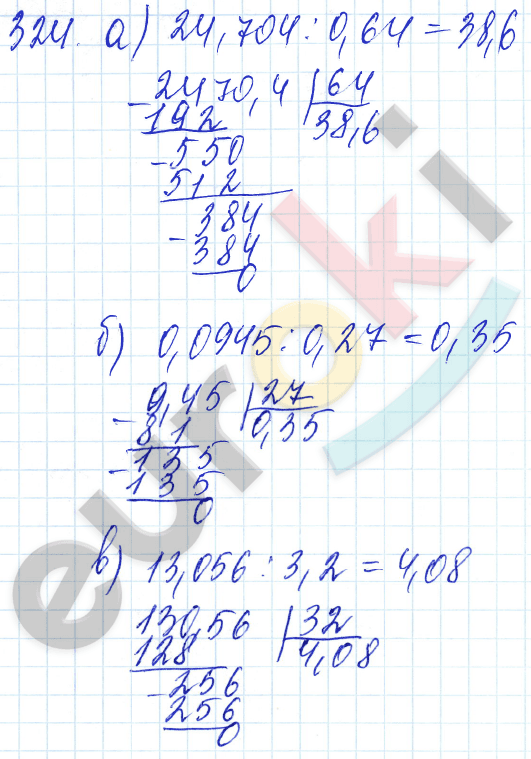 324. а) 24,704 : 0,64 = 38,6
- 2470,4 | 64
192 38,6
- 550
512
- 384
384
0
б) 0,0945 : 0,27 = 0,35
- 9,45 | 27
81 0,35
- 135
135
0
в) 13,056 : 3,2 = 4,08
130,56 | 32
128 4,08
- 256
256
0
euroki